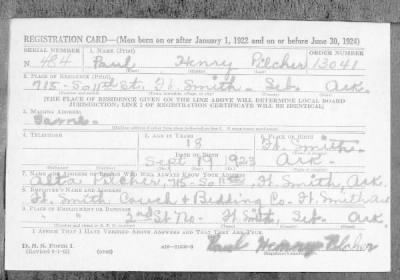 REGISTRATION CARD—(Men born on or after January 1, 1922 and on or before June 30, 1924)
SERIAL NUMBER 1. NAME (Print) ORDER NUMBER
N 484 Paul Henry Pilcher 13041
(First) (Middle) (Last)
2. PLACE OF RESIDENCE (Print)
715- So 11th St, Ft. Smith- Seb. Ark.
[THE PLACE OF RESIDENCE GIVEN ON THE LINE ABOVE WILL DETERMINE LOCAL BOARD
JURISDICTION; LINE 2 OF REGISTRATION CERTIFICATE WILL BE IDENTICAL]
3. MAILING ADDRESS
Same
4. TELEPHONE 5. AGE IN YEARS 6. PLACE OF BIRTH
18 Ft. Smith
DATE OF BIRTH
Sept 1923 Ark.
7. NAME AND ADDRESS OF PERSON WHO WILL ALWAYS KNOW YOUR ADDRESS
Alta Pilcher, 715-So 11th, Ft. Smith, Ark.
8. EMPLOYER'S NAME AND ADDRESS
Ft. Smith Couch & Bedding Co- Ft. Smith Ark
9. PLACE OF EMPLOYMENT OR BUSINESS
2nd St. No- Ft. Smith, Seb. Ark
I AFFIRM THAT I HAVE VERIFIED ABOVE ANSWERS AND THAT THEY ARE TRUE.
D. S. S. Form 1 Paul Henry Pilcher
(over)